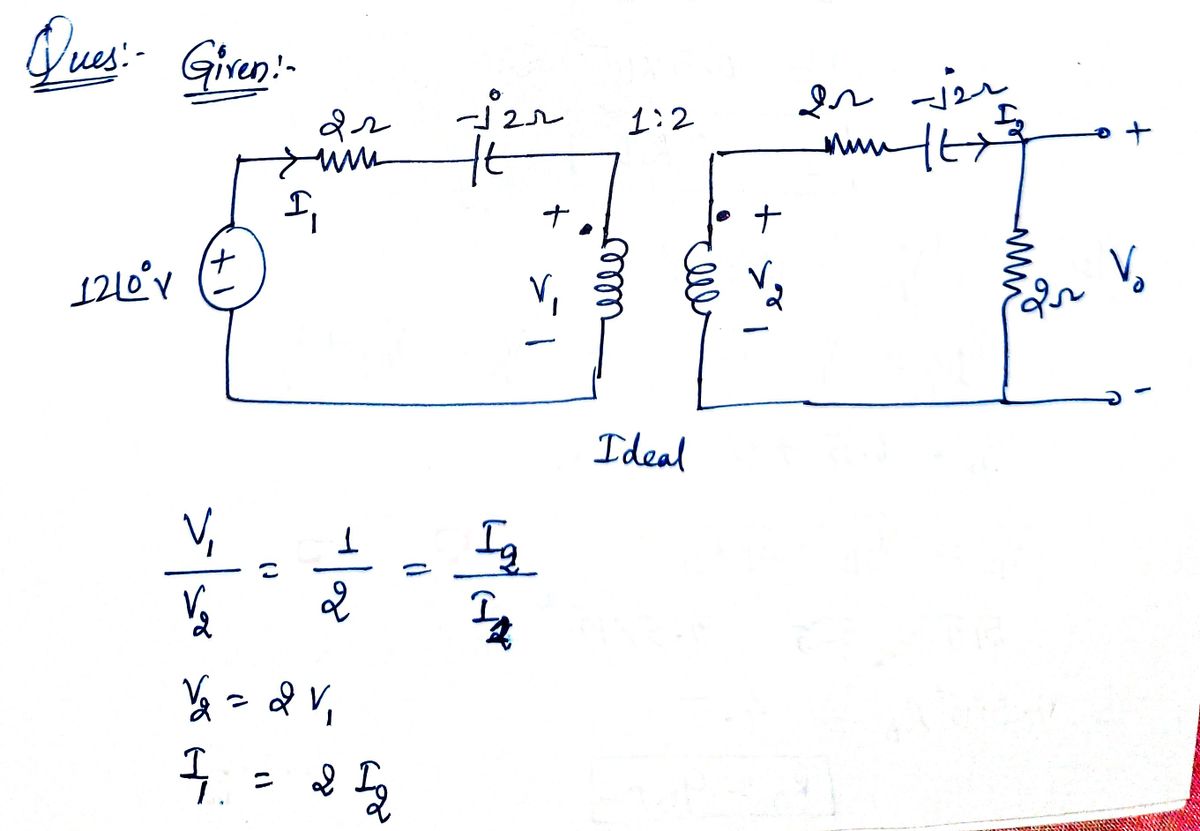 Ques:- Given:-
2Ω -j2Ω 1:2 2Ω -j2Ω
I₁ I₂ +
+ +
12∠0° V + - V₁ V₂ 2Ω V₀
- - -
Ideal
V₁/V₂ = 1/2 = I₂/I₁
V₂ = 2 V₁
I₁ = 2 I₂